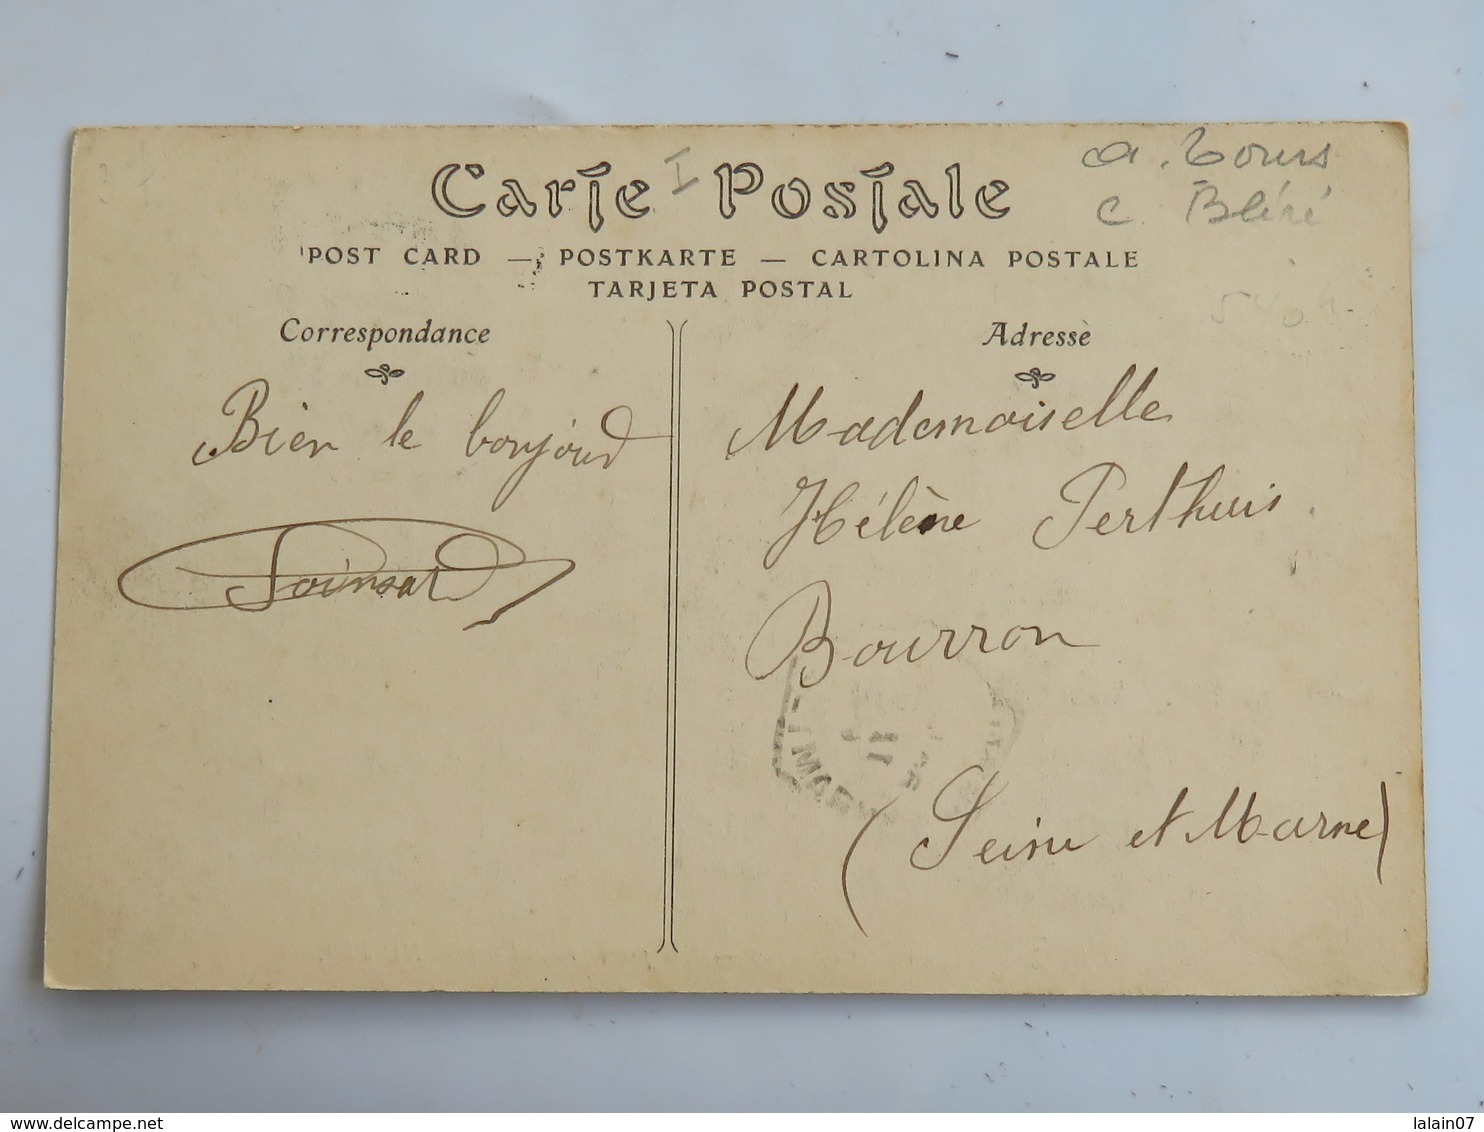 Carte Postale
I
a. Tours
c. Bléré
POST CARD — POSTKARTE — CARTOLINA POSTALE
TARJETA POSTAL
Correspondance
Bien le bonjour
Adresse
Mademoiselle
Hélène Perthuis
Bourron
(Seine et Marne)
www.delcampe.net
lalain07